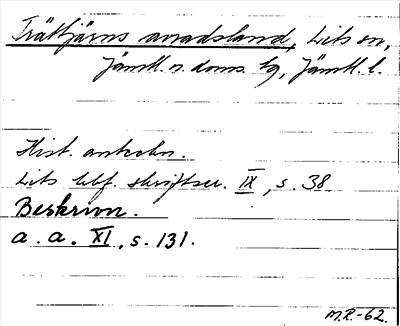 Trättjärns avradsland, Lits sn,
Jämtl. n. doms. tg, Jämtl. l.
Hist. anteckn.
Lits hbf. skriftser. IX, s. 38
Beskrivn.
a. a. XI, s. 131.
M.R.-62.